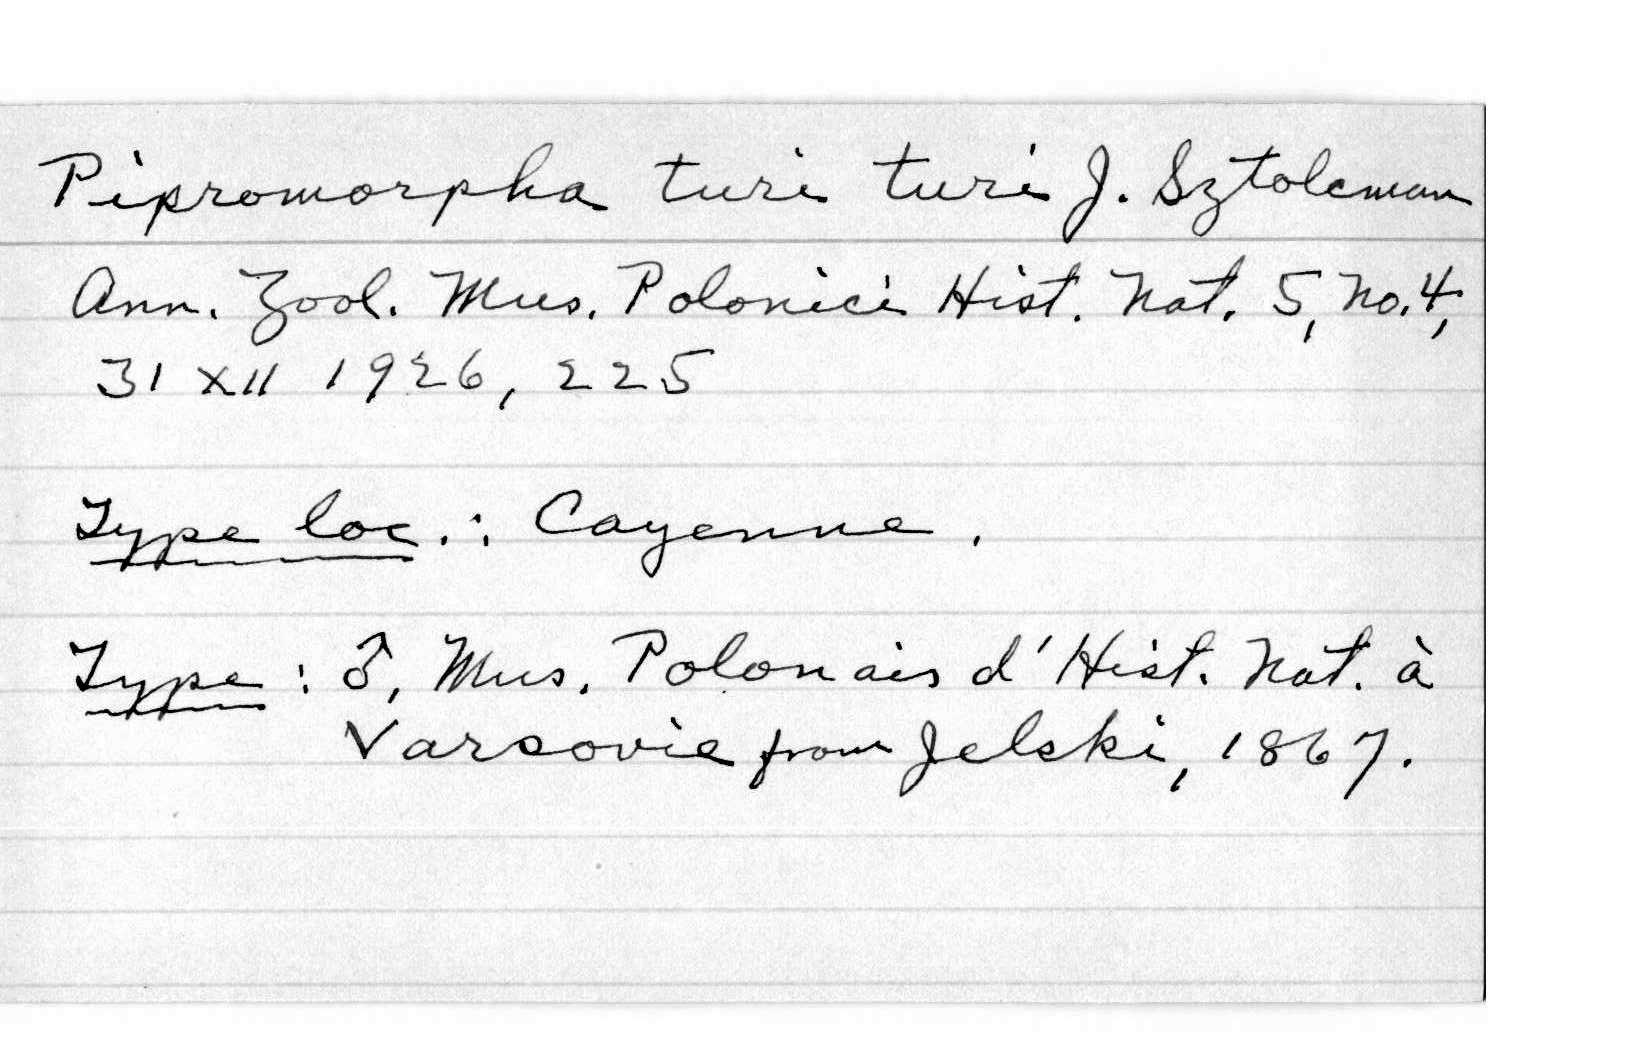 Pipromorpha turi turi J. Sztolcman
Ann. Zool. Mus. Polonici Hist. Nat. 5, No. 4,
31 XII 1926, 225
Type loc.: Cayenne.
Type: ♂, Mus. Polonais d'Hist. Nat. à
Varsovie from Jelski, 1867.